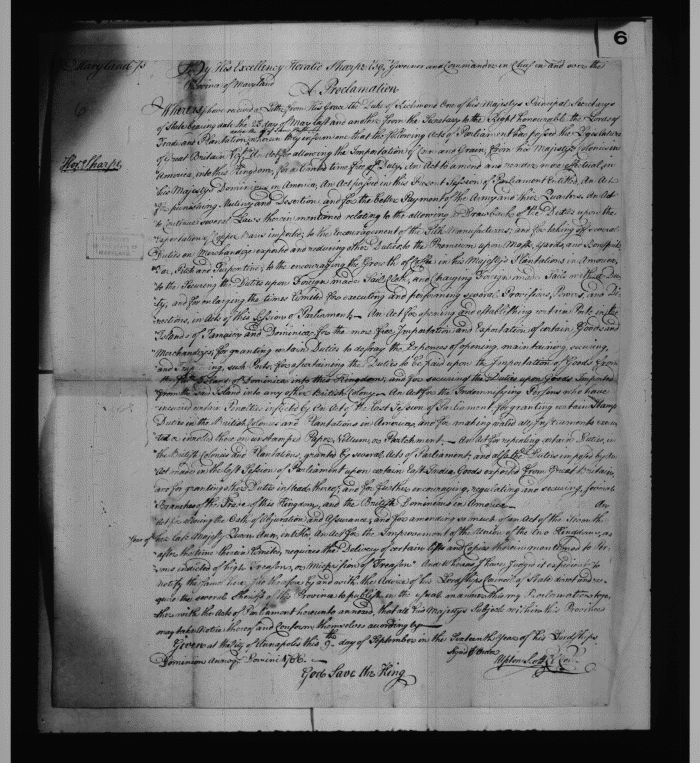 6
Maryland ss
By His Excellency Horatio Sharpe Esqr. Governor and Commander in Chief in and over the
Province of Maryland
A Proclamation
Horo. Sharpe
Whereas I have received a Letter from His Grace the Duke of Richmond One of his Majestys Principal Secretarys
of State bearing date the 23 day of May last and another from the Secretary to the Right Honourable the Lords of
Trade and Plantations wherein they inform me that the following Acts of Parliament has passed the Legislature
of Great Britain Vizt. An Act for allowing the Importation of Corn and Grain, from his Majestys Colonies in
America, into this Kingdom, for a limited time free of Duty, An Act to amend and render more effectual, in
his Majestys Dominions in America, An Act passed in this Present Session of Parliament Entitled, An Act
for punishing Mutiny and Desertion, and for the better Payment of the Army and their Quarters. An Act
to Continue several Laws therein mentioned relating to the allowing a Draw back of the Duties upon the
Exportation of Copper Bars imported; to the Encouragement of the Silk Manufactures; and for taking off several
Duties on Merchandize exported and reducing other Duties; to the Premium upon Masts, Yards, and Bowsprits
Tar, Pitch and Turpentine; to the encouraging the Growth of Coffee in his Majestys Plantations in America
to the securing the Duties upon Foreign made Sail Cloth, and charging Foreign made Sails with a Du-
ty; and for enlarging the times limited for executing and performing several Provisions, Powers, and Di-
rections, in Acts of this Session of Parliament — An Act for opening and establishing certain Ports in the
Islands of Jamaica and Dominica, for the more free Importation and Exportation of certain Goods and
Merchandizes; for granting certain Duties to defray the Expences of opening, maintaining, securing,
and improving, such Ports; for ascertaining the Duties to be paid upon the Importation of Goods from
the said Island of Dominica into this Kingdom; and for securing the Duties upon Goods Imported
from the said Island into any other British Colony — An Act for the Indemnifying Persons who have
incurred certain Penalties inflicted by An Act of the last Session of Parliament for granting certain Stamp
Duties in the British Colonies and Plantations in America; and for making valid all Instruments execu-
ted or inrolled there on unstamped Paper, Vellum, or Parchment. — An Act for repealing certain Duties, in
the British Colonies and Plantations, granted by several Acts of Parliament; and also the Duties imposed by an
Act made in the last Session of Parliament upon certain East India Goods exported from Great Britain;
and for granting other Duties instead thereof; and for further encouraging, regulating and securing, several
Branches of the Trade of this Kingdom, and the British Dominions in America — An
Act for altering the Oath of Abjuration and Assurance; and for amending so much of an Act of the Seventh
Year of
her late Majesty Queen Ann, intitled, An Act for the Improvement of the Union of the two Kingdoms, as
after the time therein limited, requires the Delivery of certain Lists and Copies therein mentioned to Per-
sons indicted of high Treason, or Misprision of Treason. And Whereas I have Judged it expedient to
notify the same I have therefore by and with the Advice of his Lordships Council of State
quire the several Sheriffs of this Province to publish in the usual manner this my Proclamation toge-
ther with the Acts of Parliament hereunto annexed, that all his Majestys Subjects within this Province
may take Notice thereof and Conform themselves accordingly —
Given at the City of Annapolis this 9th day of September in the Sixteenth Year of his Lordships
Dominion Annoq. Domini 1766. —
Signd Order
Upton Scott Cl Con.
God Save the King